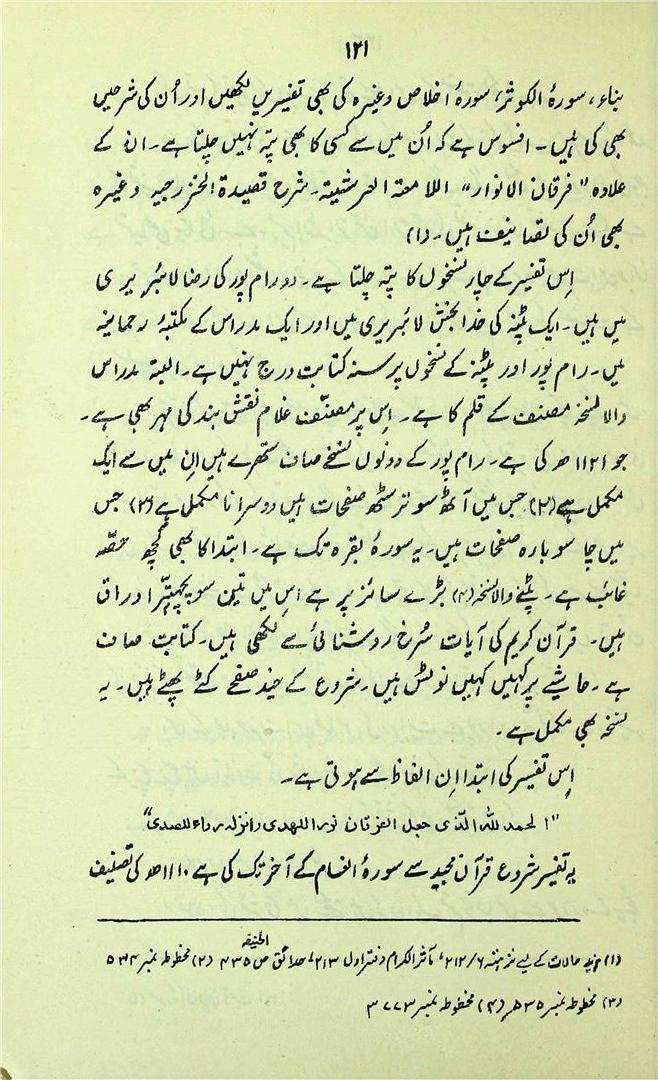 ۱۲۱
بناء، سورۂ الکوثر، سورۂ اخلاص وغیرہ کی بھی تفسیریں لکھیں اور اُن کی شرحیں
بھی کی ہیں ۔ افسوس ہے کہ اُن میں سے کسی کا بھی پتہ نہیں چلتا ہے ۔ ان کے
علاوہ "فرقان الانوار" اللامعۃ العرشیۃ۔ شرح قصیدۃ الخزرجیہ وغیرہ
بھی اُن کی تصانیف ہیں ۔ (۱)
اِس تفسیر کے چار نسخوں کا پتہ چلتا ہے ۔ دو رام پور کی رضا لائبریری
میں ہیں ۔ ایک پٹنہ کی خدا بخش لائبریری میں اور ایک مدراس کے مکتبۂ رحمانیہ
میں ۔ رام پور اور پٹنہ کے نسخوں پر سنہ کتابت درج نہیں ہے ۔ البتہ مدراس
والا نسخہ مصنف کے قلم کا ہے ۔ اس پر مصنّف غلام نقش بند کی مہر بھی ہے ۔
جو ۱۱۲۱ھ کی ہے ۔ رام پور کے دونوں نسخے صاف ستھرے ہیں اِن میں سے ایک
مکمل ہے (۲) جس میں آٹھ سو نرسٹھ صفحات ہیں دوسرا نا مکمل ہے (۳) جس
میں چا سو بارہ صفحات ہیں ۔ یہ سورۂ بقرہ تک ہے ۔ ابتدا کا بھی کچھ حصّہ
غائب ہے ۔ پٹنے والا نسخہ (۴) بڑے سائز پر ہے اس میں تین سو پچھتّر اوراق
ہیں ۔ قرآن کریم کی آیات سُرخ روشنائی سے لکھی ہیں ۔ کتابت صاف
ہے ۔ حاشیے پر کہیں کہیں نوٹس ہیں ۔ شروع کے چند صفحے کٹے پھٹے ہیں ۔ یہ
نسخہ بھی مکمل ہے ۔
اِس تفسیر کی ابتدا اِن الفاظ سے ہوتی ہے ۔
"الحمد للہ الّذی جعل الفرقان نورا للھدی وانزلہ رداء للصدی"
یہ تفسیر شروع قرآن مجید سے سورۂ انعام کے آخر تک کی ہے ۱۱۱۰ھ کی تصنیف
(۱) مزید حالات کے لیے نزہتہ ۲۱۲/۶، مآثر الکرام دفتر اول ۲۱۳، حدائق الحنیفہ ص ۴۳۵ (۲) مخطوطہ نمبر ۵۳۴
(۳) مخطوطہ نمبر ۵۳۵ھ (۴) مخطوطہ نمبر ۳۷۷۳